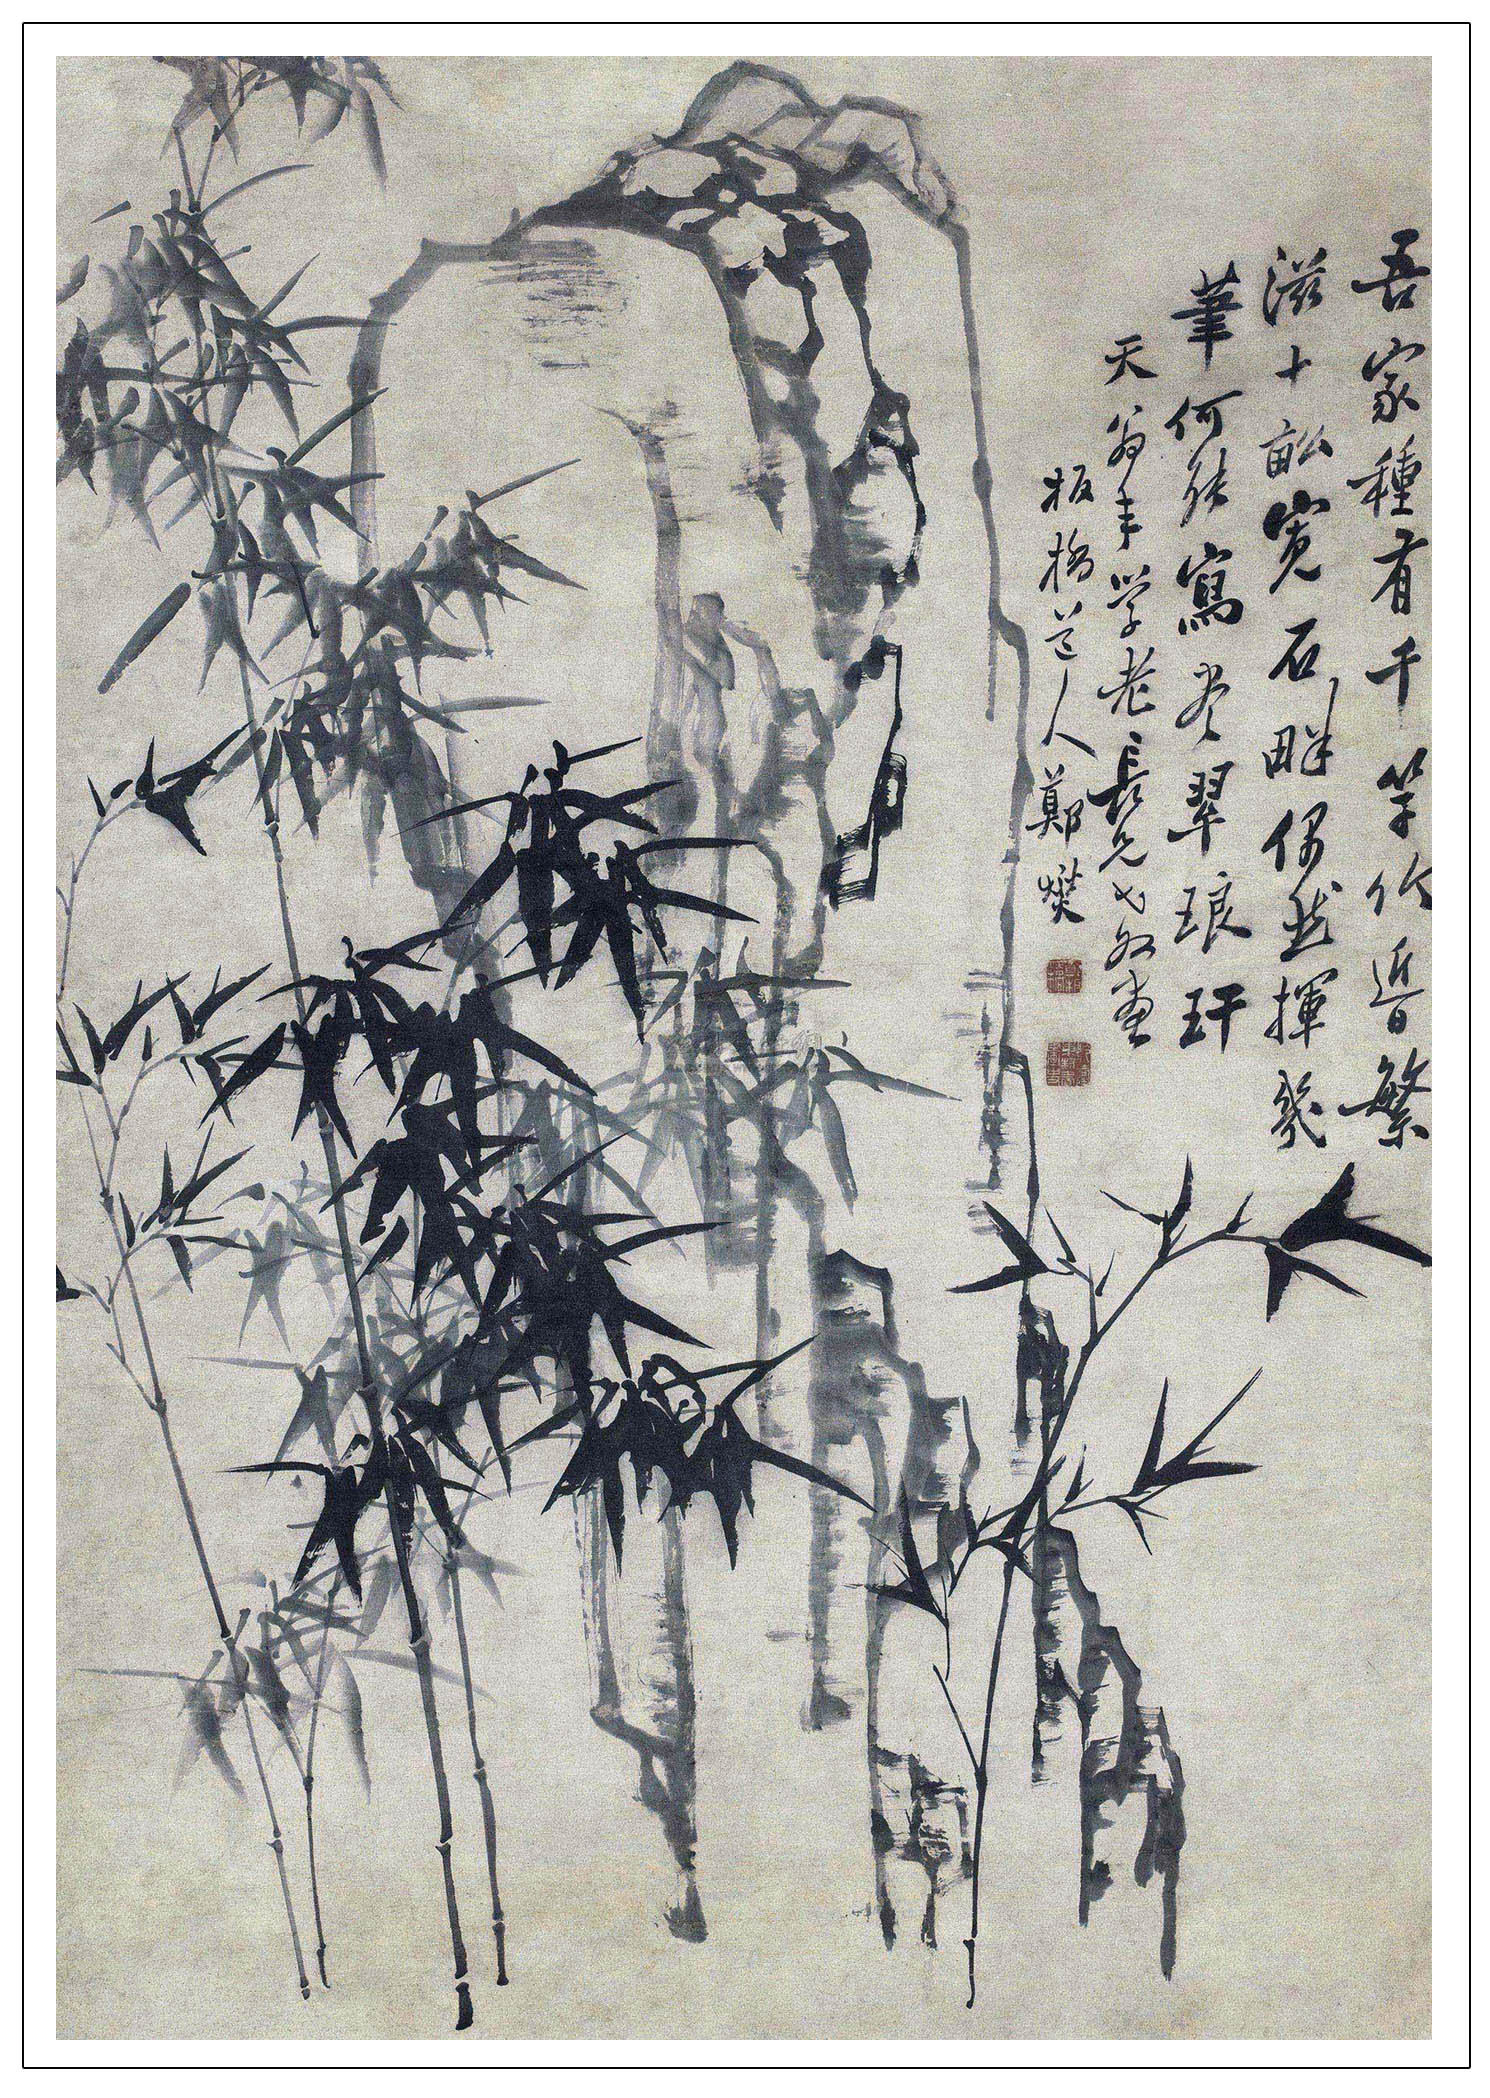 吾家種有千竿竹近日繁
滋十畝寬石畔偶然揮幾
筆何能寫盡翠琅玕
天翁年学老長兄
板橋道人鄭燮